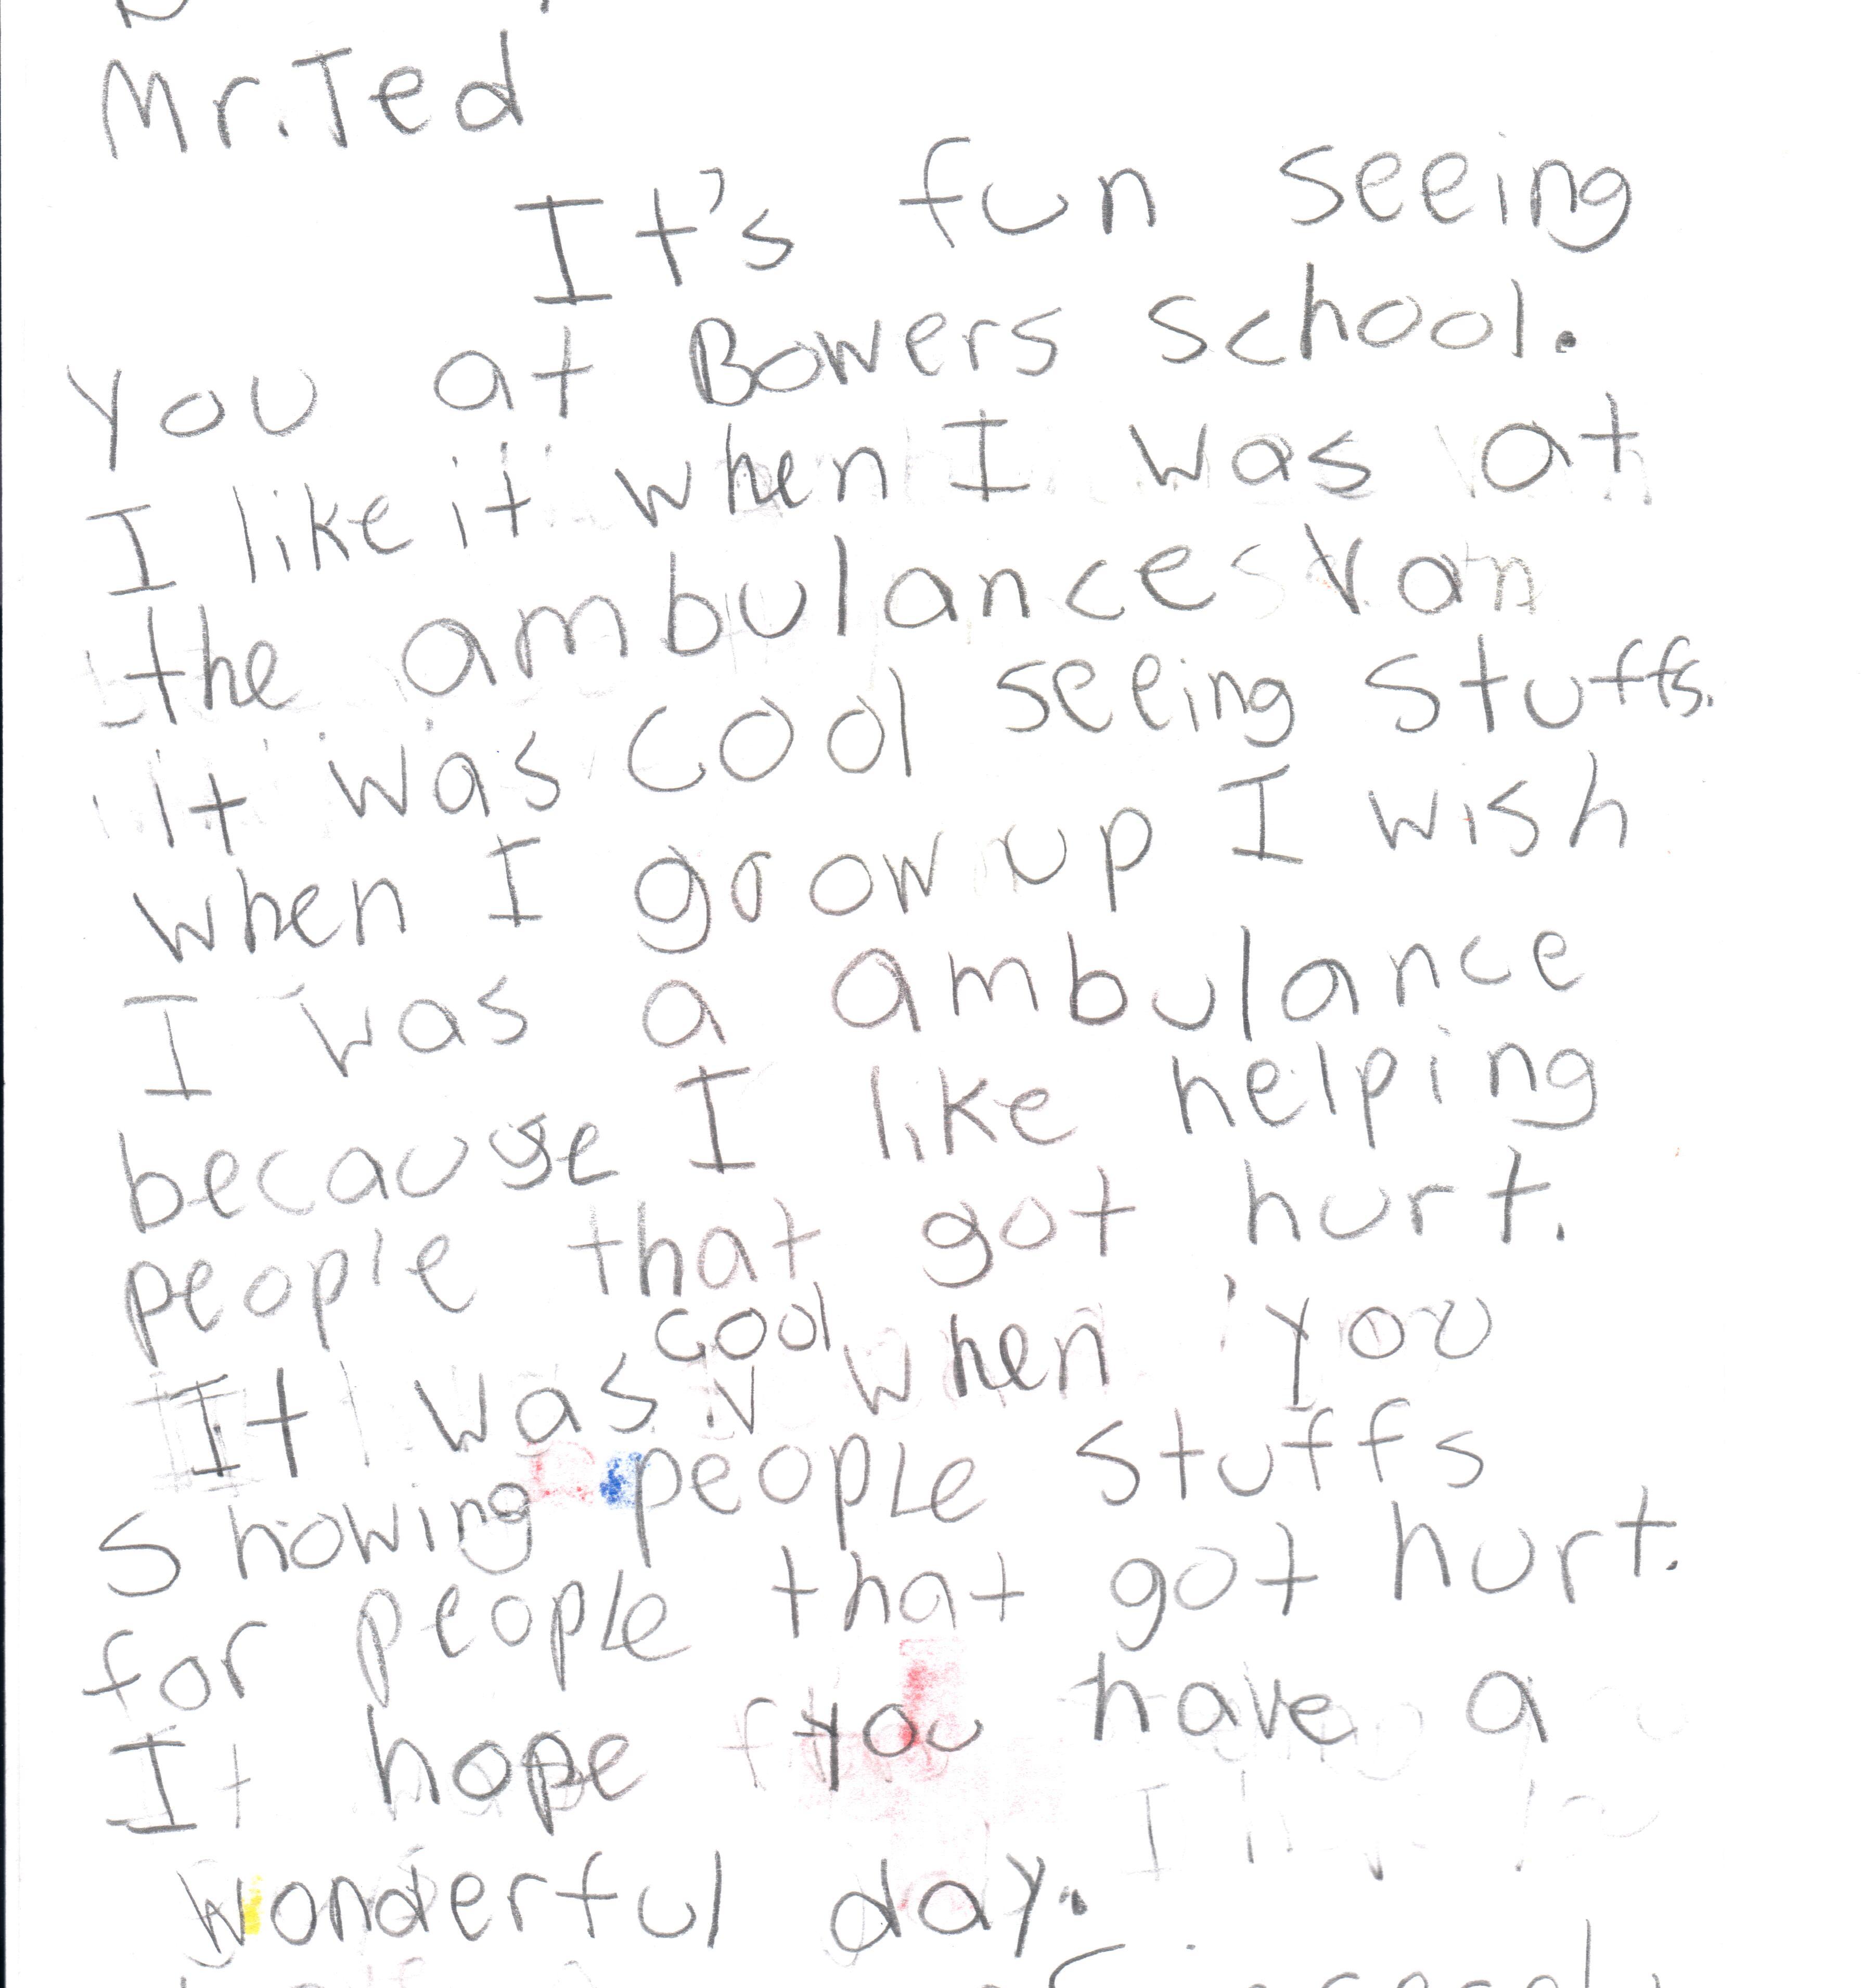 Mr. Ted
It's fun seeing
you at Bowers school.
I like it when I was at
the ambulances Van
it was cool seeing stuffs.
when I grow up I wish
I was a ambulance
because I like helping
people that got hurt.
It was cool when you
showing people stuffs
for people that got hurt.
I hope you have a
wonderful day.